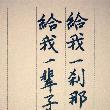 給我一剎那
給我一輩子